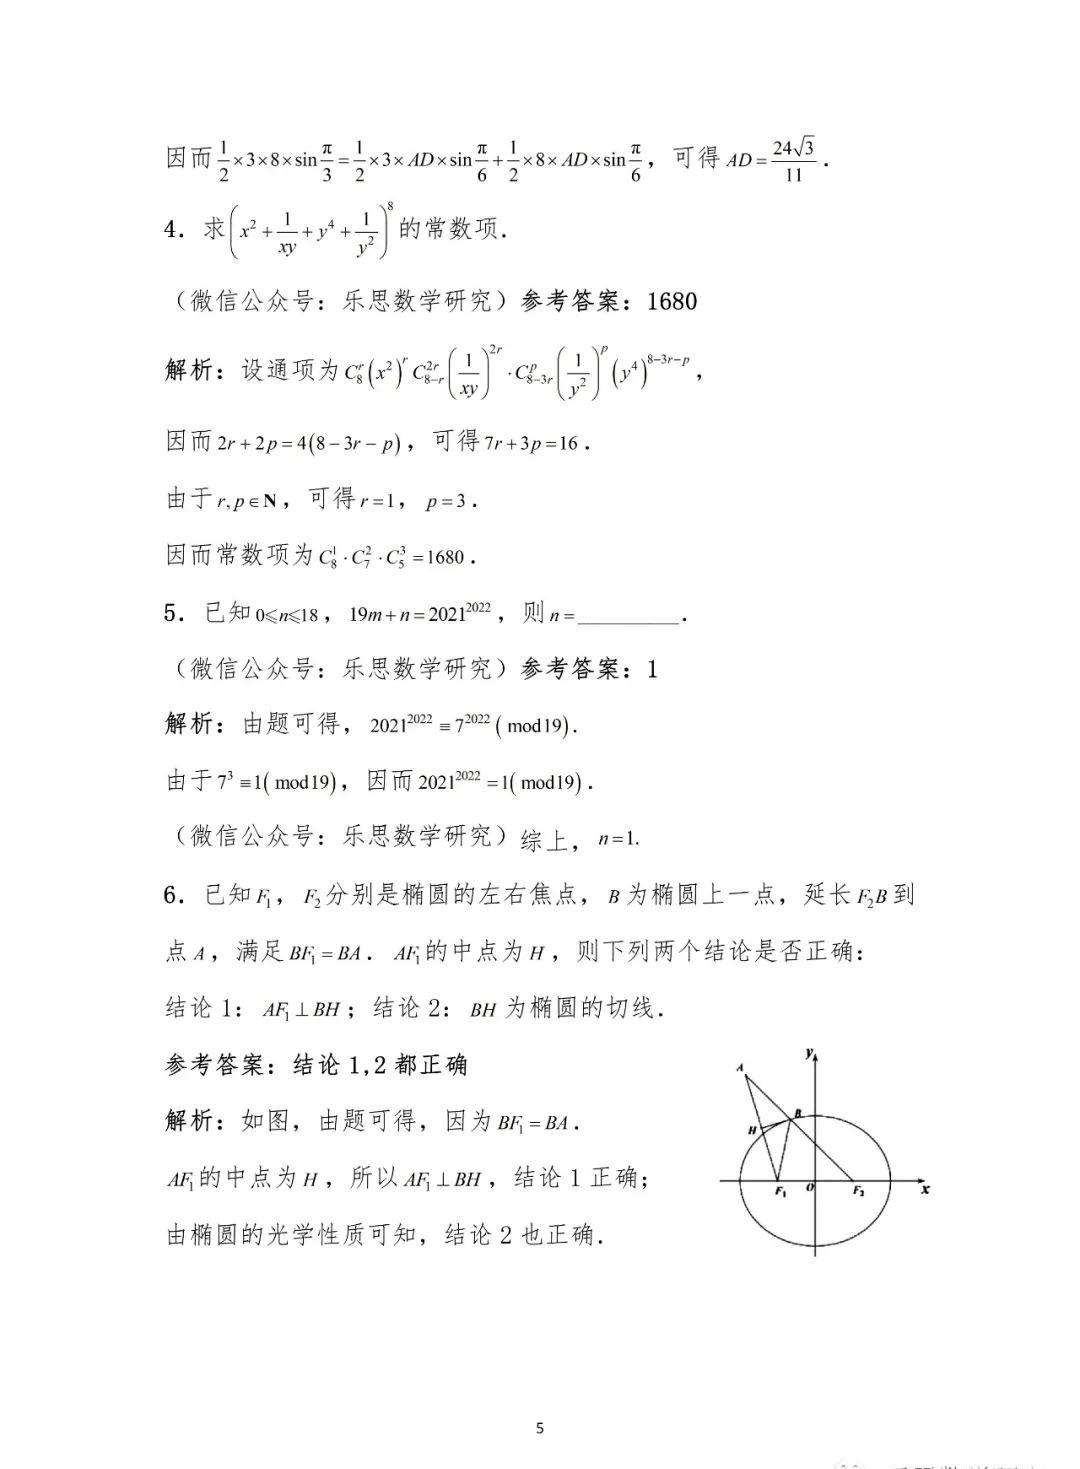 因而 1/2×3×8×sin π/3 = 1/2×3×AD×sin π/6 + 1/2×8×AD×sin π/6，可得 AD = 24√3/11．
4．求(x² + 1/xy + y⁴ + 1/y²)⁸的常数项．
（微信公众号：乐思数学研究）参考答案：1680
解析：设通项为 C₈ʳ(x²)ʳ C₈₋ᵣ²ʳ(1/xy)²ʳ · C₈₋₃ᵣᵖ(1/y²)ᵖ(y⁴)⁸⁻³ʳ⁻ᵖ，
因而 2r + 2p = 4(8 − 3r − p)，可得 7r + 3p = 16．
由于 r, p ∈ N，可得 r = 1， p = 3．
因而常数项为 C₈¹ · C₇² · C₅³ = 1680．
5．已知 0⩽n⩽18，19m + n = 2021²⁰²²，则 n = ________．
（微信公众号：乐思数学研究）参考答案：1
解析：由题可得，2021²⁰²² ≡ 7²⁰²² ( mod19)．
由于 7³ ≡ 1( mod19)，因而 2021²⁰²² = 1( mod19)．
（微信公众号：乐思数学研究）综上，n = 1.
6．已知 F₁，F₂ 分别是椭圆的左右焦点，B 为椭圆上一点，延长 F₂B 到
点 A，满足 BF₁ = BA．AF₁ 的中点为 H，则下列两个结论是否正确：
结论 1：AF₁ ⊥ BH；结论 2：BH 为椭圆的切线．
参考答案：结论 1,2 都正确
解析：如图，由题可得，因为 BF₁ = BA．
AF₁ 的中点为 H，所以 AF₁ ⊥ BH，结论 1 正确；
由椭圆的光学性质可知，结论 2 也正确．
y
A
B
H
F₁
O
F₂
x
5